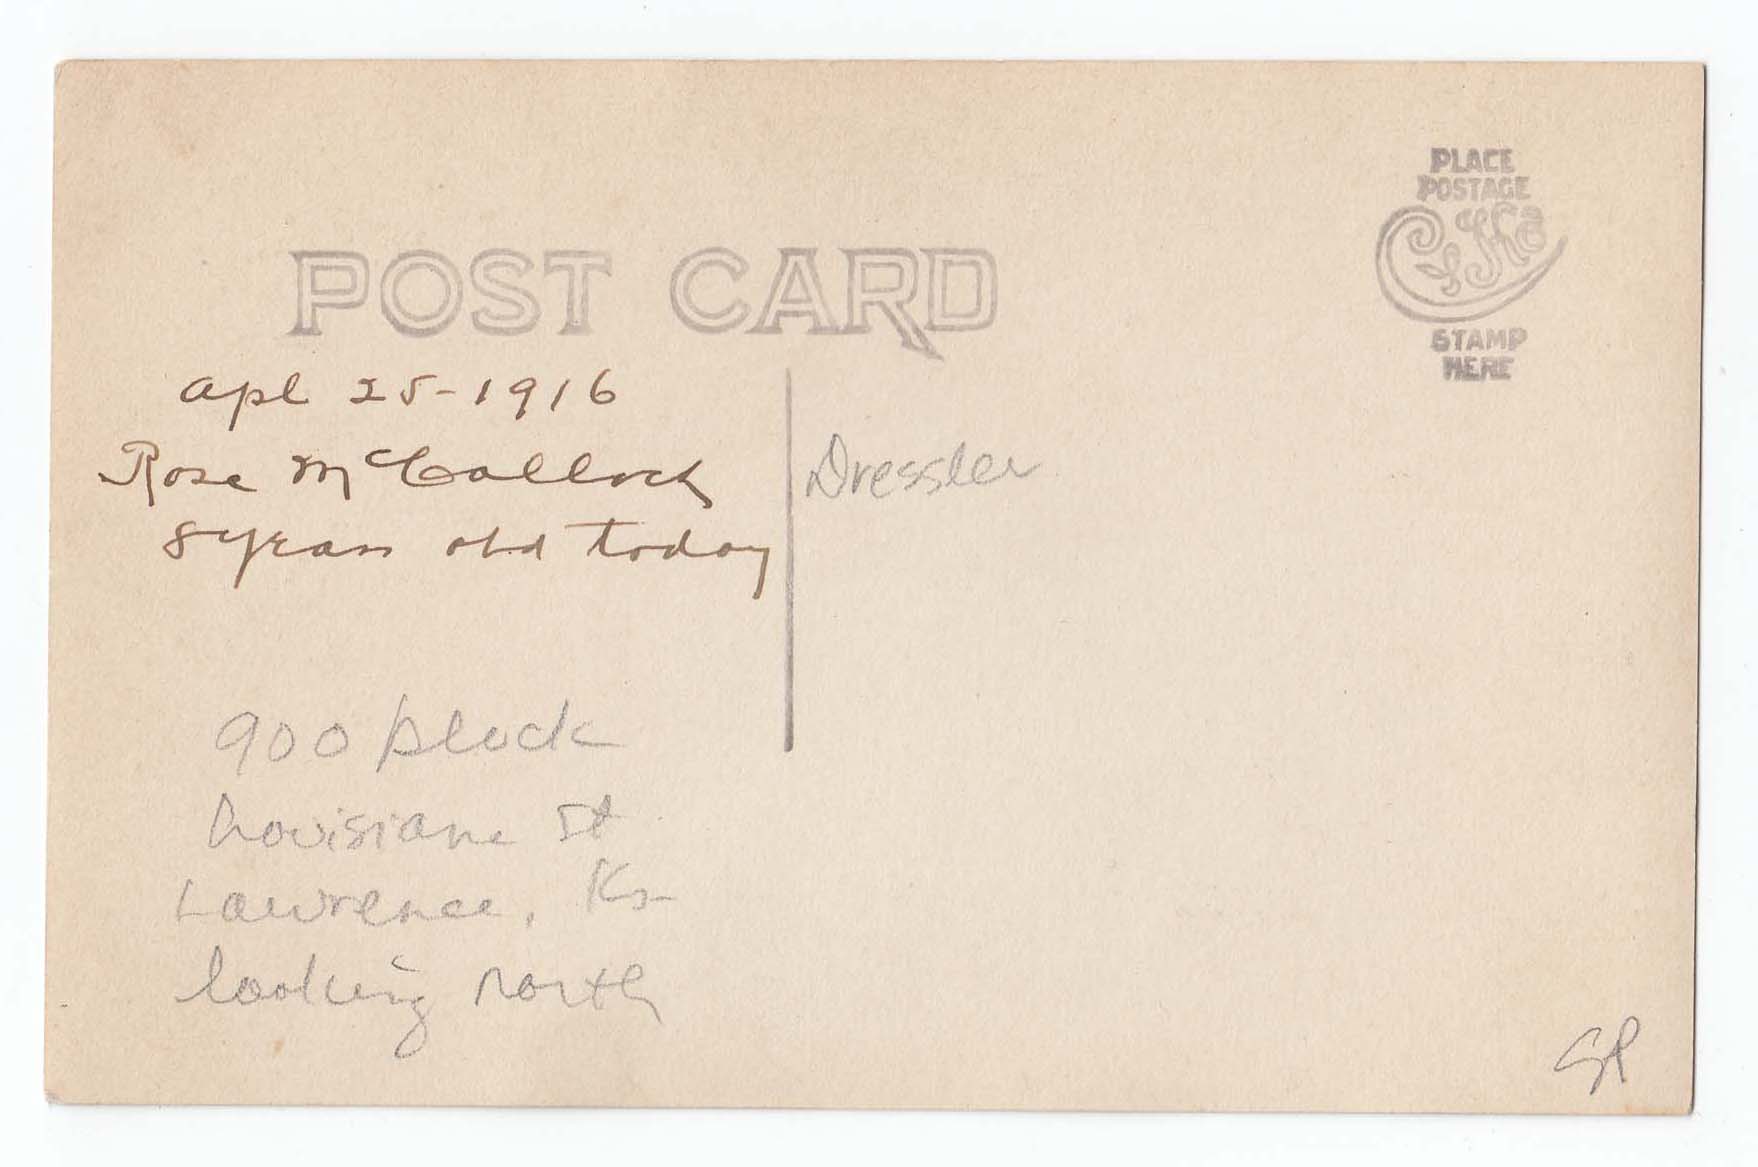 POST CARD
PLACE
POSTAGE
CYKO
STAMP
HERE
Apl 25-1916
Rose McColloch
8 years old today
Dressler
900 block
Louisiana St
Lawrence, Ks
looking north